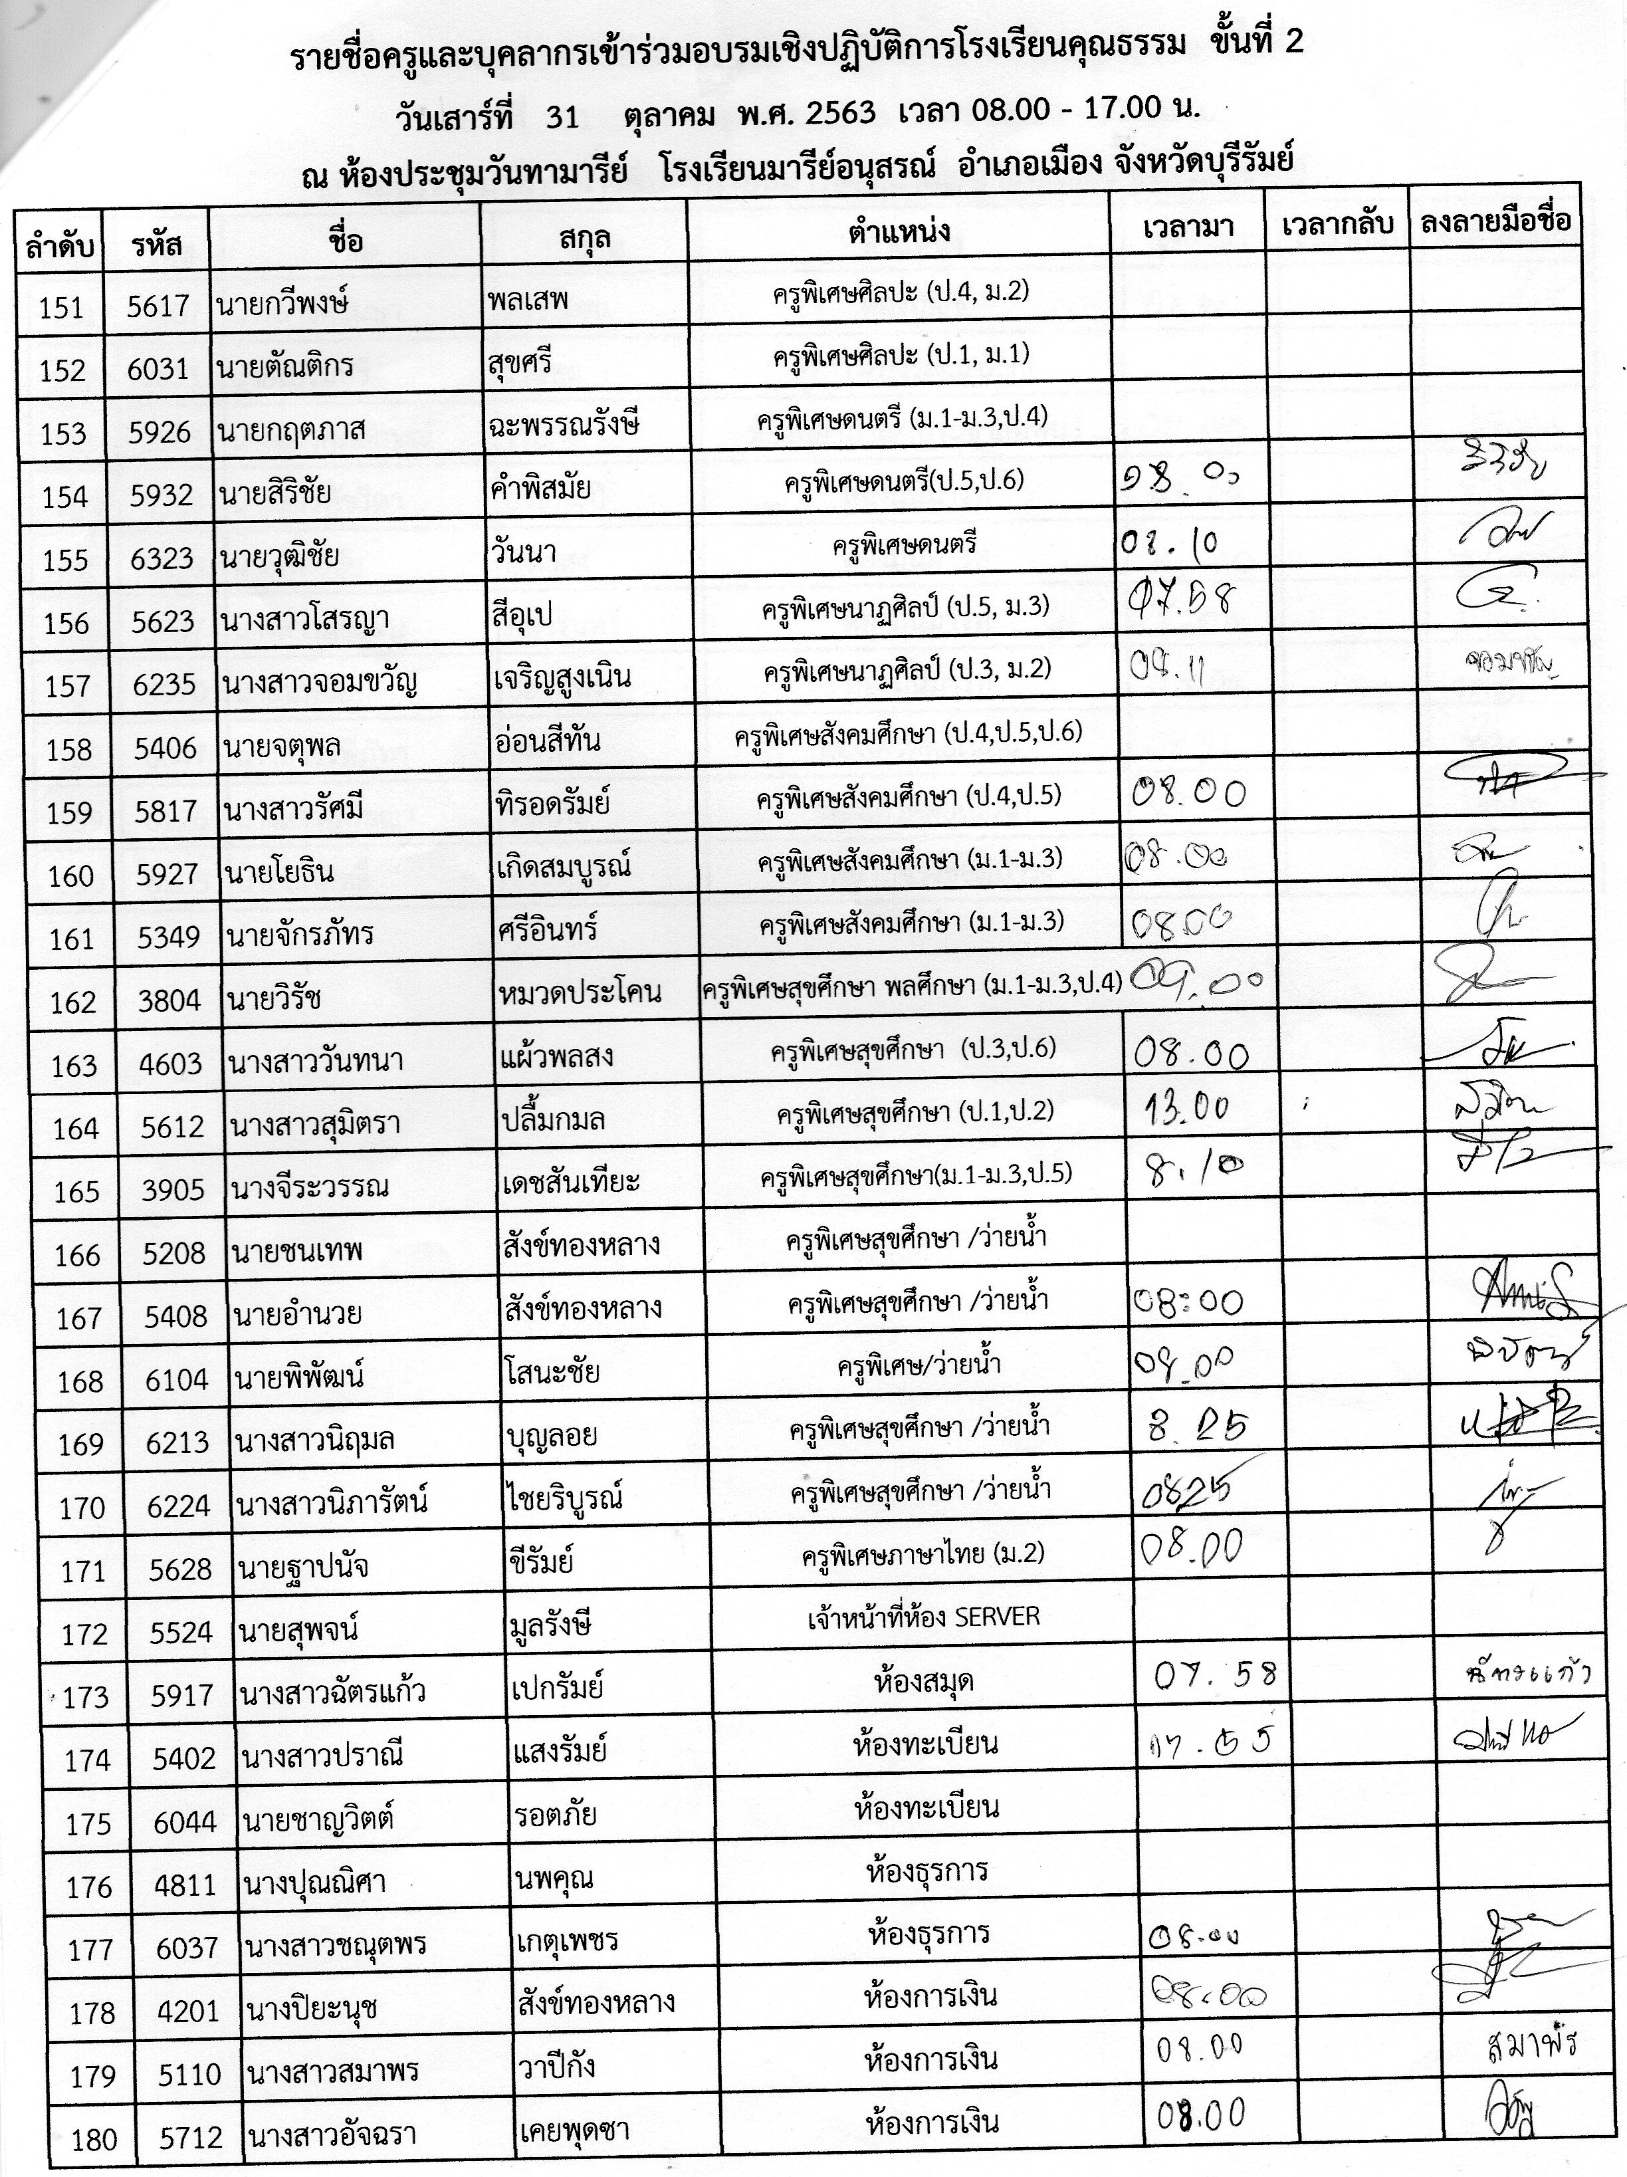 รายชื่อครูและบุคลากรเข้าร่วมอบรมเชิงปฏิบัติการโรงเรียนคุณธรรม ขั้นที่ 2
วันเสาร์ที่ 31 ตุลาคม พ.ศ. 2563 เวลา 08.00 - 17.00 น.
ณ ห้องประชุมวันทามารีย์ โรงเรียนมารีย์อนุสรณ์ อำเภอเมือง จังหวัดบุรีรัมย์
ลำดับ รหัส ชื่อ สกุล ตำแหน่ง เวลามา เวลากลับ ลงลายมือชื่อ
151 5617 นายกวีพงษ์ พลเสพ ครูพิเศษศิลปะ (ป.4, ม.2)
152 6031 นายตัณติกร สุขศรี ครูพิเศษศิลปะ (ป.1, ม.1)
153 5926 นายกฤตภาส ฉะพรรณรังษี ครูพิเศษดนตรี (ม.1-ม.3,ป.4)
154 5932 นายสิริชัย คำพิสมัย ครูพิเศษดนตรี(ป.5,ป.6) 08.00
155 6323 นายวุฒิชัย วันนา ครูพิเศษดนตรี 08.10
156 5623 นางสาวโสรญา สีอุเป ครูพิเศษนาฏศิลป์ (ป.5, ม.3) 07.58
157 6235 นางสาวจอมขวัญ เจริญสูงเนิน ครูพิเศษนาฏศิลป์ (ป.3, ม.2) 08.11 จอมขวัญ
158 5406 นายจตุพล อ่อนสีทัน ครูพิเศษสังคมศึกษา (ป.4,ป.5,ป.6)
159 5817 นางสาวรัศมี ทิรอดรัมย์ ครูพิเศษสังคมศึกษา (ป.4,ป.5) 08.00
160 5927 นายโยธิน เกิดสมบูรณ์ ครูพิเศษสังคมศึกษา (ม.1-ม.3) 08.00
161 5349 นายจักรภัทร ศรีอินทร์ ครูพิเศษสังคมศึกษา (ม.1-ม.3) 08.00
162 3804 นายวิรัช หมวดประโคน ครูพิเศษสุขศึกษา พลศึกษา (ม.1-ม.3,ป.4) 09.00
163 4603 นางสาววันทนา แผ้วพลสง ครูพิเศษสุขศึกษา (ป.3,ป.6) 08.00
164 5612 นางสาวสุมิตรา ปลื้มกมล ครูพิเศษสุขศึกษา (ป.1,ป.2) 13.00
165 3905 นางจีระวรรณ เดชสันเทียะ ครูพิเศษสุขศึกษา(ม.1-ม.3,ป.5) 8.10
166 5208 นายชนเทพ สังข์ทองหลาง ครูพิเศษสุขศึกษา /ว่ายน้ำ
167 5408 นายอำนวย สังข์ทองหลาง ครูพิเศษสุขศึกษา /ว่ายน้ำ 08:00
168 6104 นายพิพัฒน์ โสนะชัย ครูพิเศษ/ว่ายน้ำ 08.00 พิพัฒน์
169 6213 นางสาวนิฤมล บุญลอย ครูพิเศษสุขศึกษา /ว่ายน้ำ 8.25
170 6224 นางสาวนิภารัตน์ ไชยริบูรณ์ ครูพิเศษสุขศึกษา /ว่ายน้ำ 0825
171 5628 นายฐาปนัจ ขีรัมย์ ครูพิเศษภาษาไทย (ม.2) 08.00
172 5524 นายสุพจน์ มูลรังษี เจ้าหน้าที่ห้อง SERVER
173 5917 นางสาวฉัตรแก้ว เปกรัมย์ ห้องสมุด 07.58 ฉัตรแก้ว
174 5402 นางสาวปราณี แสงรัมย์ ห้องทะเบียน 07.55
175 6044 นายชาญวิตต์ รอตภัย ห้องทะเบียน
176 4811 นางปุณณิศา นพคุณ ห้องธุรการ
177 6037 นางสาวชณุตพร เกตุเพชร ห้องธุรการ 08.00
178 4201 นางปิยะนุช สังข์ทองหลาง ห้องการเงิน 08.00
179 5110 นางสาวสมาพร วาปีกัง ห้องการเงิน 08.00 สมาพร
180 5712 นางสาวอัจฉรา เคยพุดซา ห้องการเงิน 08.00